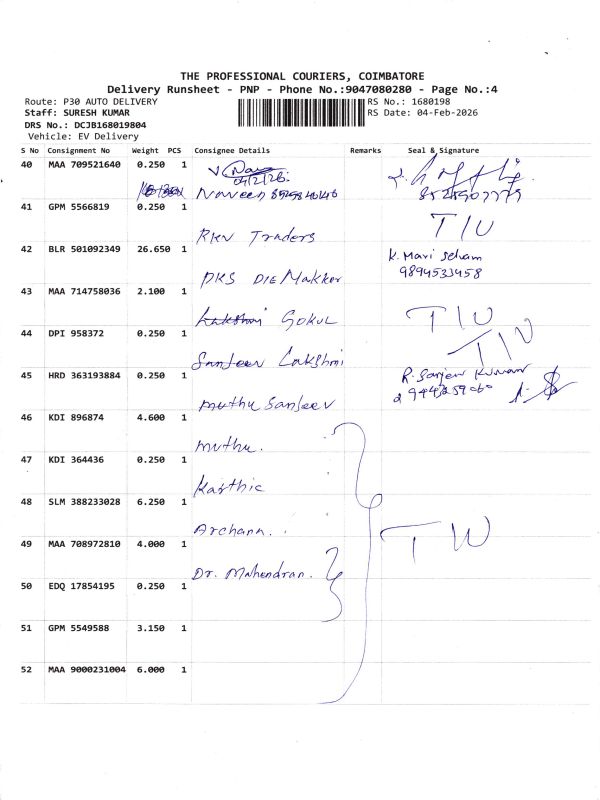 THE PROFESSIONAL COURIERS, COIMBATORE
Delivery Runsheet - PNP - Phone No.:9047080280 - Page No.:4
Route: P30 AUTO DELIVERY
RS No.: 1680198
Staff: SURESH KUMAR
RS Date: 04-Feb-2026
DRS No.: DCJB168019804
Vehicle: EV Delivery
S No Consignment No Weight PCS Consignee Details Remarks Seal & Signature
40 MAA 709521640 0.250 1
04/2/26
Naveen
41 GPM 5566819 0.250 1
RKN Traders T/U
42 BLR 501092349 26.650 1 K. Mari
9894533458
PKS DIE Makker
43 MAA 714758036 2.100 1
Lakshmi GOKUL T/U
44 DPI 958372 0.250 1 T/U
Sanjeev Lakshmi
45 HRD 363193884 0.250 1 R. Sanjeev Kumar
Muthu Sanjeev
46 KDI 896874 4.600 1
Muthu.
47 KDI 364436 0.250 1
Karthic
48 SLM 388233028 6.250 1
Archana. T U
49 MAA 708972810 4.000 1
Dr. Mahendran.
50 EDQ 17854195 0.250 1
51 GPM 5549588 3.150 1
52 MAA 9000231004 6.000 1